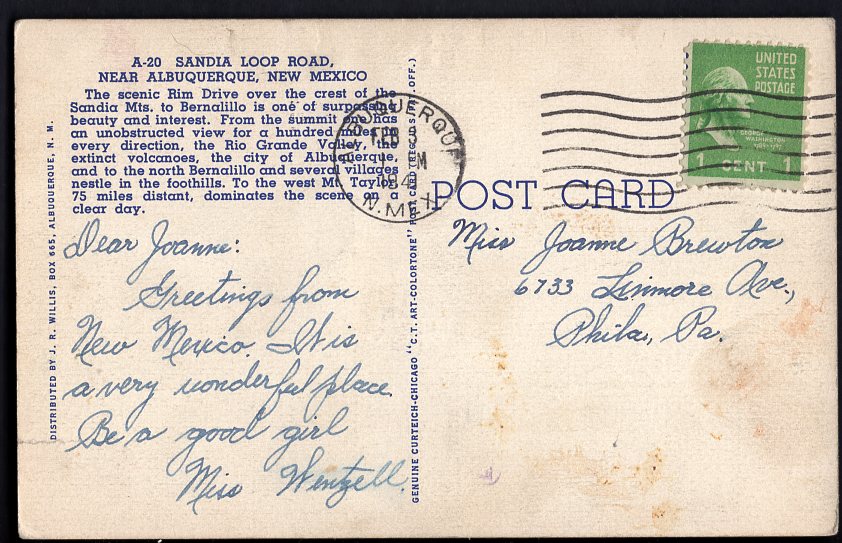 A-20 SANDIA LOOP ROAD,
NEAR ALBUQUERQUE, NEW MEXICO
The scenic Rim Drive over the crest of the
Sandia Mts. to Bernalillo is one of surpassing
beauty and interest. From the summit one has
an unobstructed view for a hundred miles in
every direction, the Rio Grande Valley, the
extinct volcanoes, the city of Albuquerque,
and to the north Bernalillo and several villages
nestle in the foothills. To the west Mt. Taylor,
75 miles distant, dominates the scene on a
clear day.
DISTRIBUTED BY J. R. WILLIS, BOX 665, ALBUQUERQUE, N. M.
Dear Joanne:
Greetings from
New Mexico. It is
a very wonderful place.
Be a good girl
Miss Wentzell.
GENUINE CURTEICH-CHICAGO "C. T. ART-COLORTONE" POST CARD (REG. U. S. PAT. OFF.)
ALBUQUERQUE
FEB 3
N. MEX.
UNITED
STATES
POSTAGE
GEORGE
WASHINGTON
1789-1797
1 CENT 1
POST CARD
Miss Joanne Brewton
6733 Linmore Ave.,
Phila., Pa.